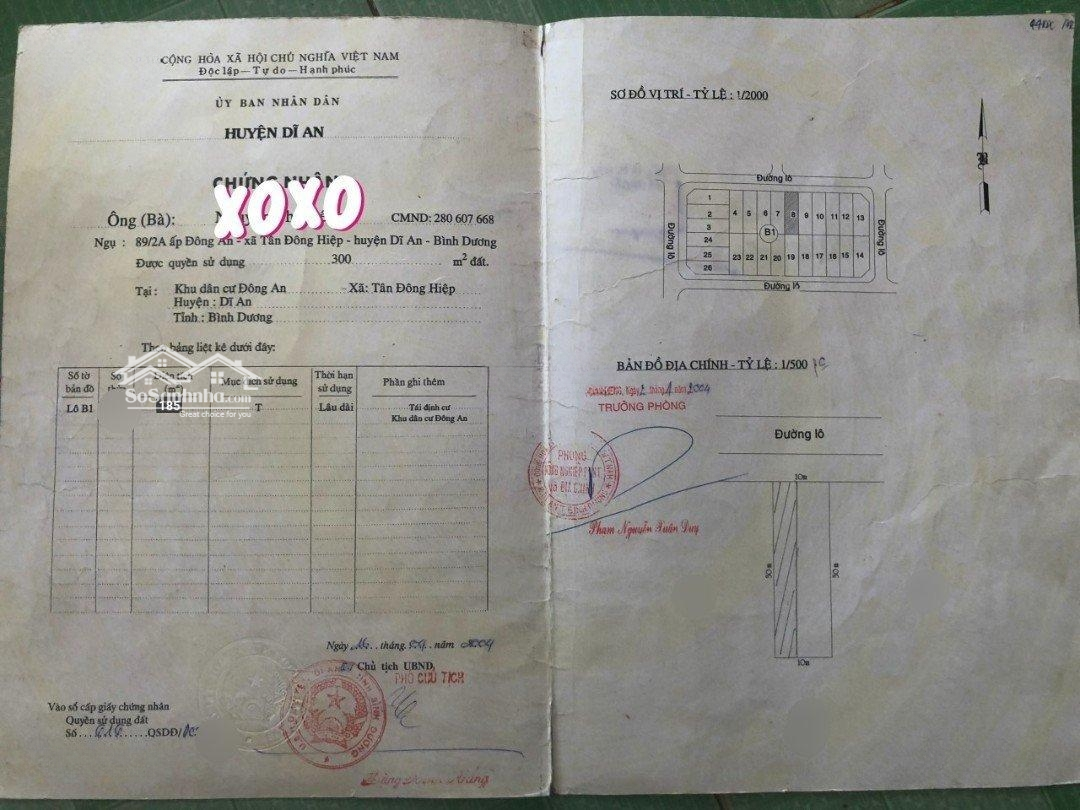 CỘNG HÒA XÃ HỘI CHỦ NGHĨA VIỆT NAM
Độc lập - Tự do - Hạnh phúc
ỦY BAN NHÂN DÂN
HUYỆN DĨ AN
CHỨNG NHẬN
XOXO
Ông (Bà): CMND: 280 607 668
Ngụ : 89/2A ấp Đông An - xã Tân Đông Hiệp - huyện Dĩ An - Bình Dương
Được quyền sử dụng 300 m² đất.
Tại : Khu dân cư Đông An Xã: Tân Đông Hiệp
Huyện : Dĩ An
Tỉnh : Bình Dương
Theo bảng liệt kê dưới đây:
Số tờ bản đồ Số Diện tích (m²) Mục đích sử dụng Thời hạn sử dụng Phần ghi thêm
Lô B1 185 T Lâu dài Tái định cư
Khu dân cư Đông An
SoSanhnha.com
Great choice for you
Ngày 16 tháng 04 năm 2004
Chủ tịch UBND
PHÓ CHỦ TỊCH
Vào sổ cấp giấy chứng nhận
Quyền sử dụng đất
Số QSDĐ/
SƠ ĐỒ VỊ TRÍ - TỶ LỆ : 1/2000
B
Đường lô
1
2
3
24
25
26
4 5 6 7 8 9 10 11 12 13
B1
23 22 21 20 19 18 17 16 15 14
Đường lô
Đường lô
Đường lô
BẢN ĐỒ ĐỊA CHÍNH - TỶ LỆ : 1/500
năm 2004
TRƯỞNG PHÒNG
PHÒNG
Phạm Nguyễn Xuân Duy
Đường lô
10m
30 m
30 m
10m